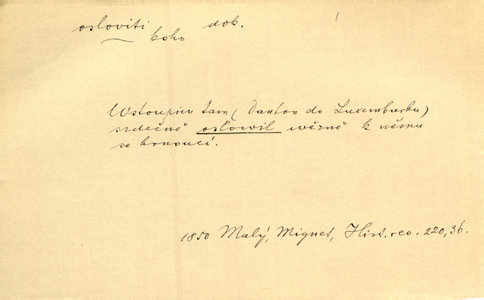 osloviti koho dok.
Wstoupiv tam (Danton do Luxemburku)
srdečně oslowil wězně k němu
se hrnoucí.
1850 Malý, Mignet, Hist. rev. 220,36.